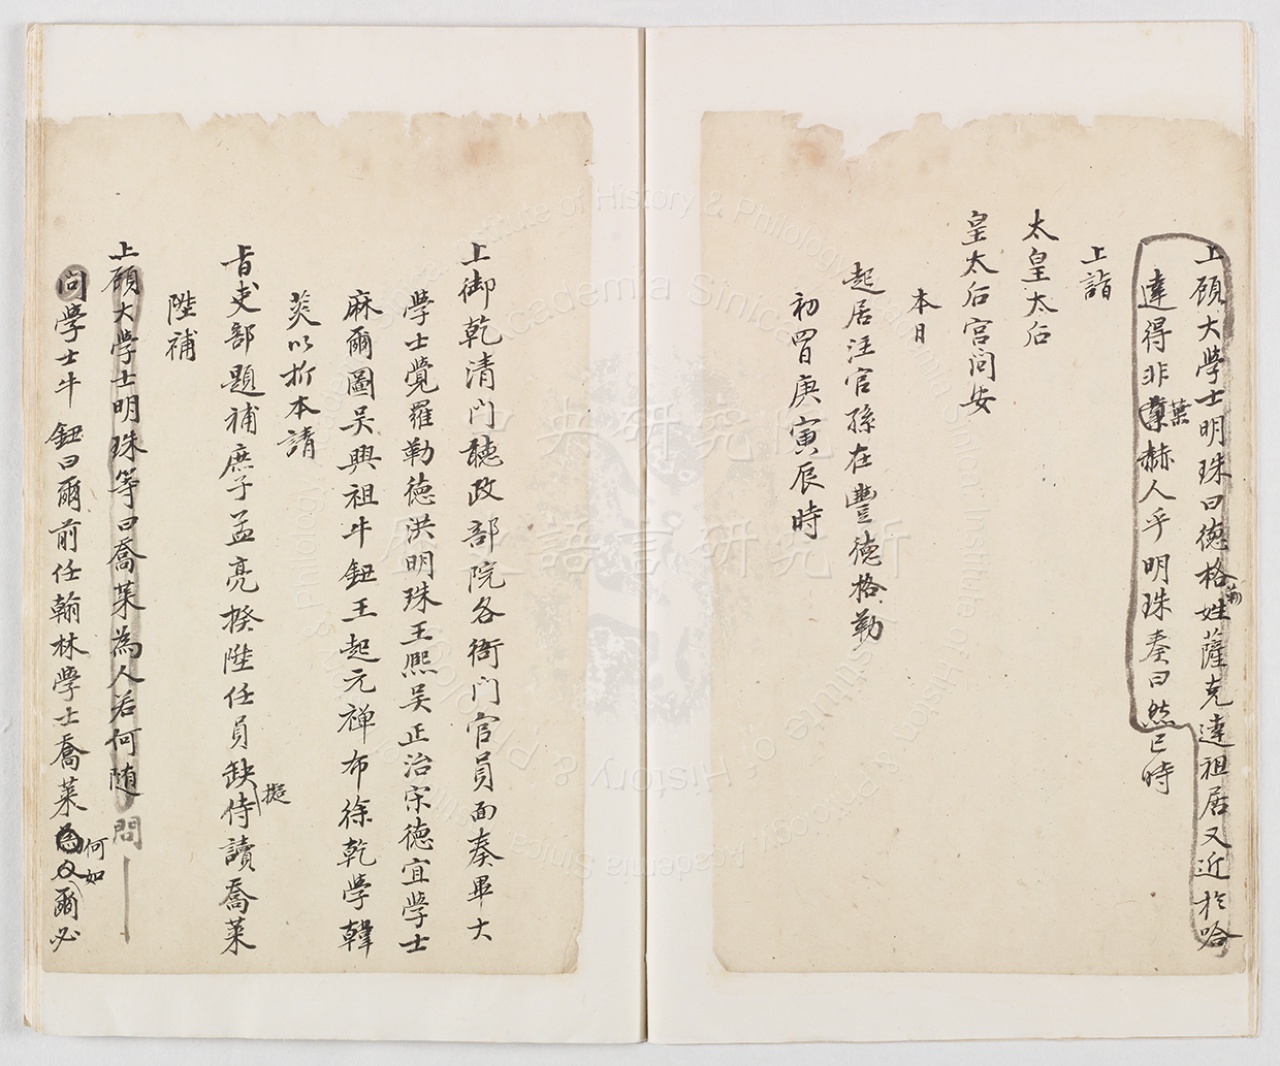 上顧大學士明珠曰德格姓薩克達祖居又近於哈
勒
達得非葉赫人乎明珠奏曰然巳時
上詣
太皇太后
皇太后宮問安
本日
起居注官孫在豐德格勒
初四日庚寅辰時
上御乾清門聽政部院各衙門官員面奏畢大
學士覺羅勒德洪明珠王熙吳正治宋德宜學士
麻爾圖吳興祖牛鈕王起元禅布徐乾學韓
菼以折本請
旨吏部題補庶子孟亮揆陞任員缺擬侍讀喬萊
陞補
上顧大學士明珠等曰喬萊為人若何隨問
問學士牛鈕曰爾前任翰林學士喬萊何如爾必
中央研究院
歷史語言研究所
Institute of History & Philology, Academia Sinica